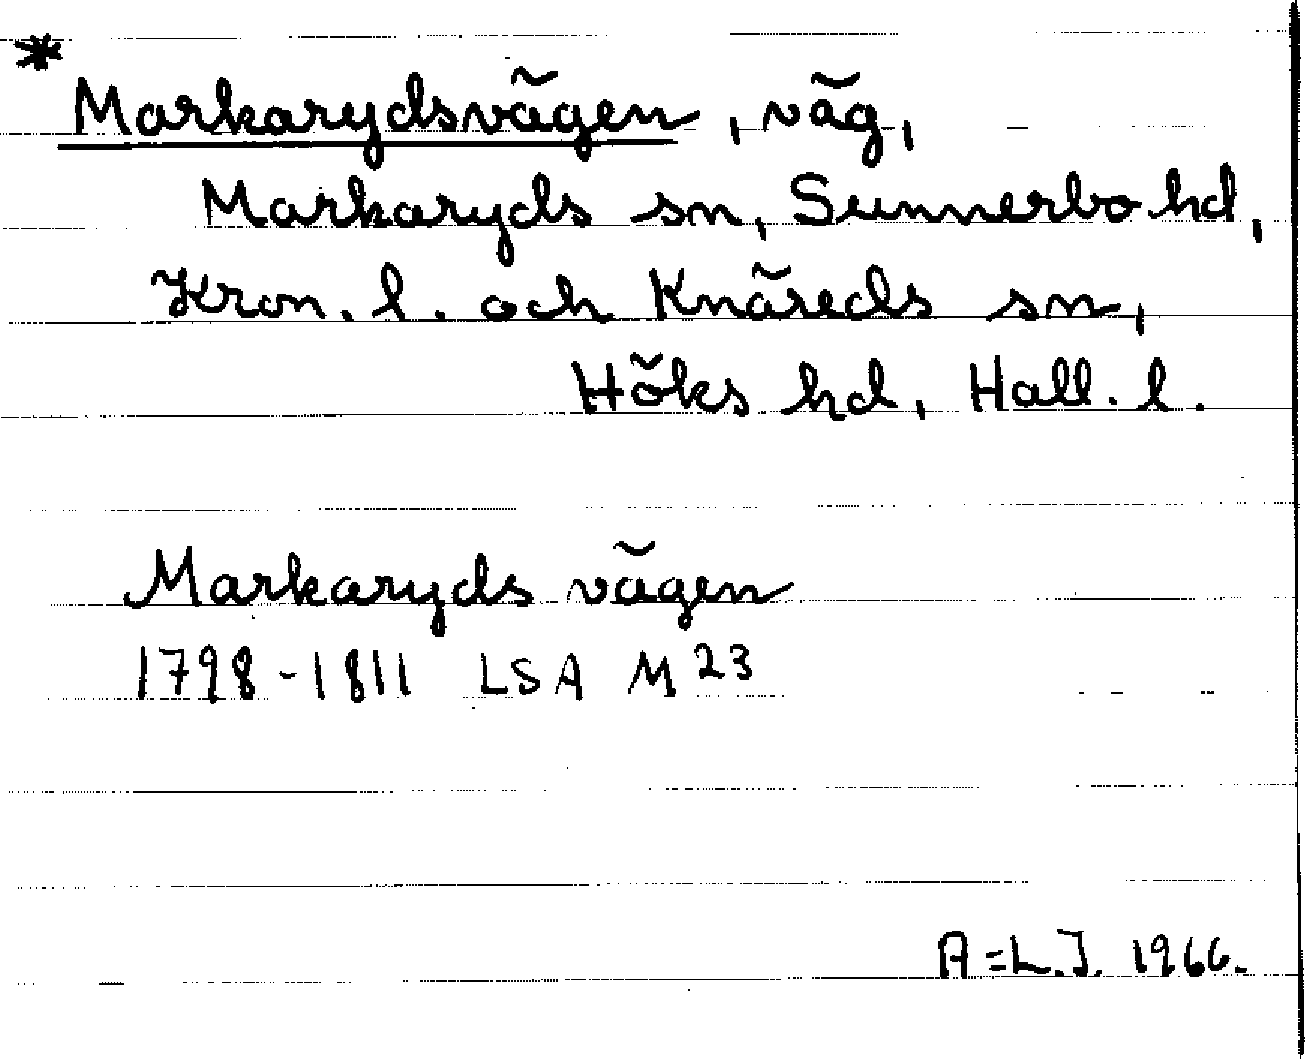 *
Markarydsvägen, väg,
Markaryds sn, Sunnerbo hd,
Kron. l. och Knäreds sn,
Höks hd, Hall. l.
Markaryds vägen
1798-1811 LSA M 23
A=L.J. 1966.